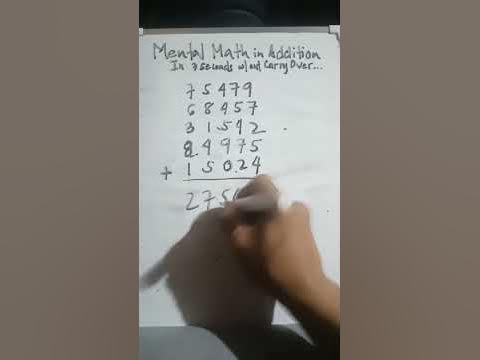 Mental Math in Addition
In 7 Seconds w/out Carry Over...
75479
68457
31542
84975
+ 15024
275